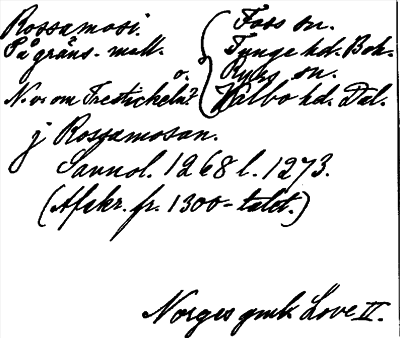 Rossamosi.
På gräns. mell.
N. v. om Trestickeln?
Foss sn.
Tunge hd. Boh.
o.
Ryrs sn.
Valbo hd. Dal.
j Rossamosan.
Sannol. 1268 l. 1273.
(Afskr. fr. 1300-talet.)
Norges gmk Love II.